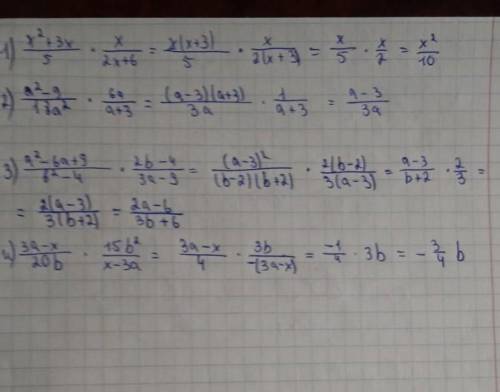 1) (x²+3x)/5 · x/(2x+6) = x(x+3)/5 · x/(2(x+3)) = x/5 · x/2 = x²/10
2) (a²-9)/(18a²) · 6a/(a+3) = (a-3)(a+3)/(3a) · 1/(a+3) = (a-3)/(3a)
3) (a²-6a+9)/(b²-4) · (2b-4)/(3a-9) = (a-3)²/((b-2)(b+2)) · 2(b-2)/(3(a-3)) = (a-3)/(b+2) · 2/3 =
= 2(a-3)/(3(b+2)) = (2a-6)/(3b+6)
4) (3a-x)/(20b) · 15b²/(x-3a) = (3a-x)/4 · 3b/(-(3a-x)) = -1/4 · 3b = -3/4 b